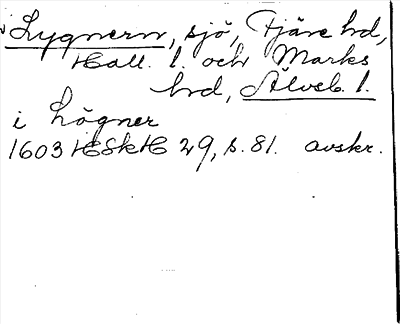 Lygnern, sjö, Fjäre hd,
Hall. l. och Marks
hd, Älvsb. l.
i Lögner
1603 HSkH 29, s. 81. avskr.